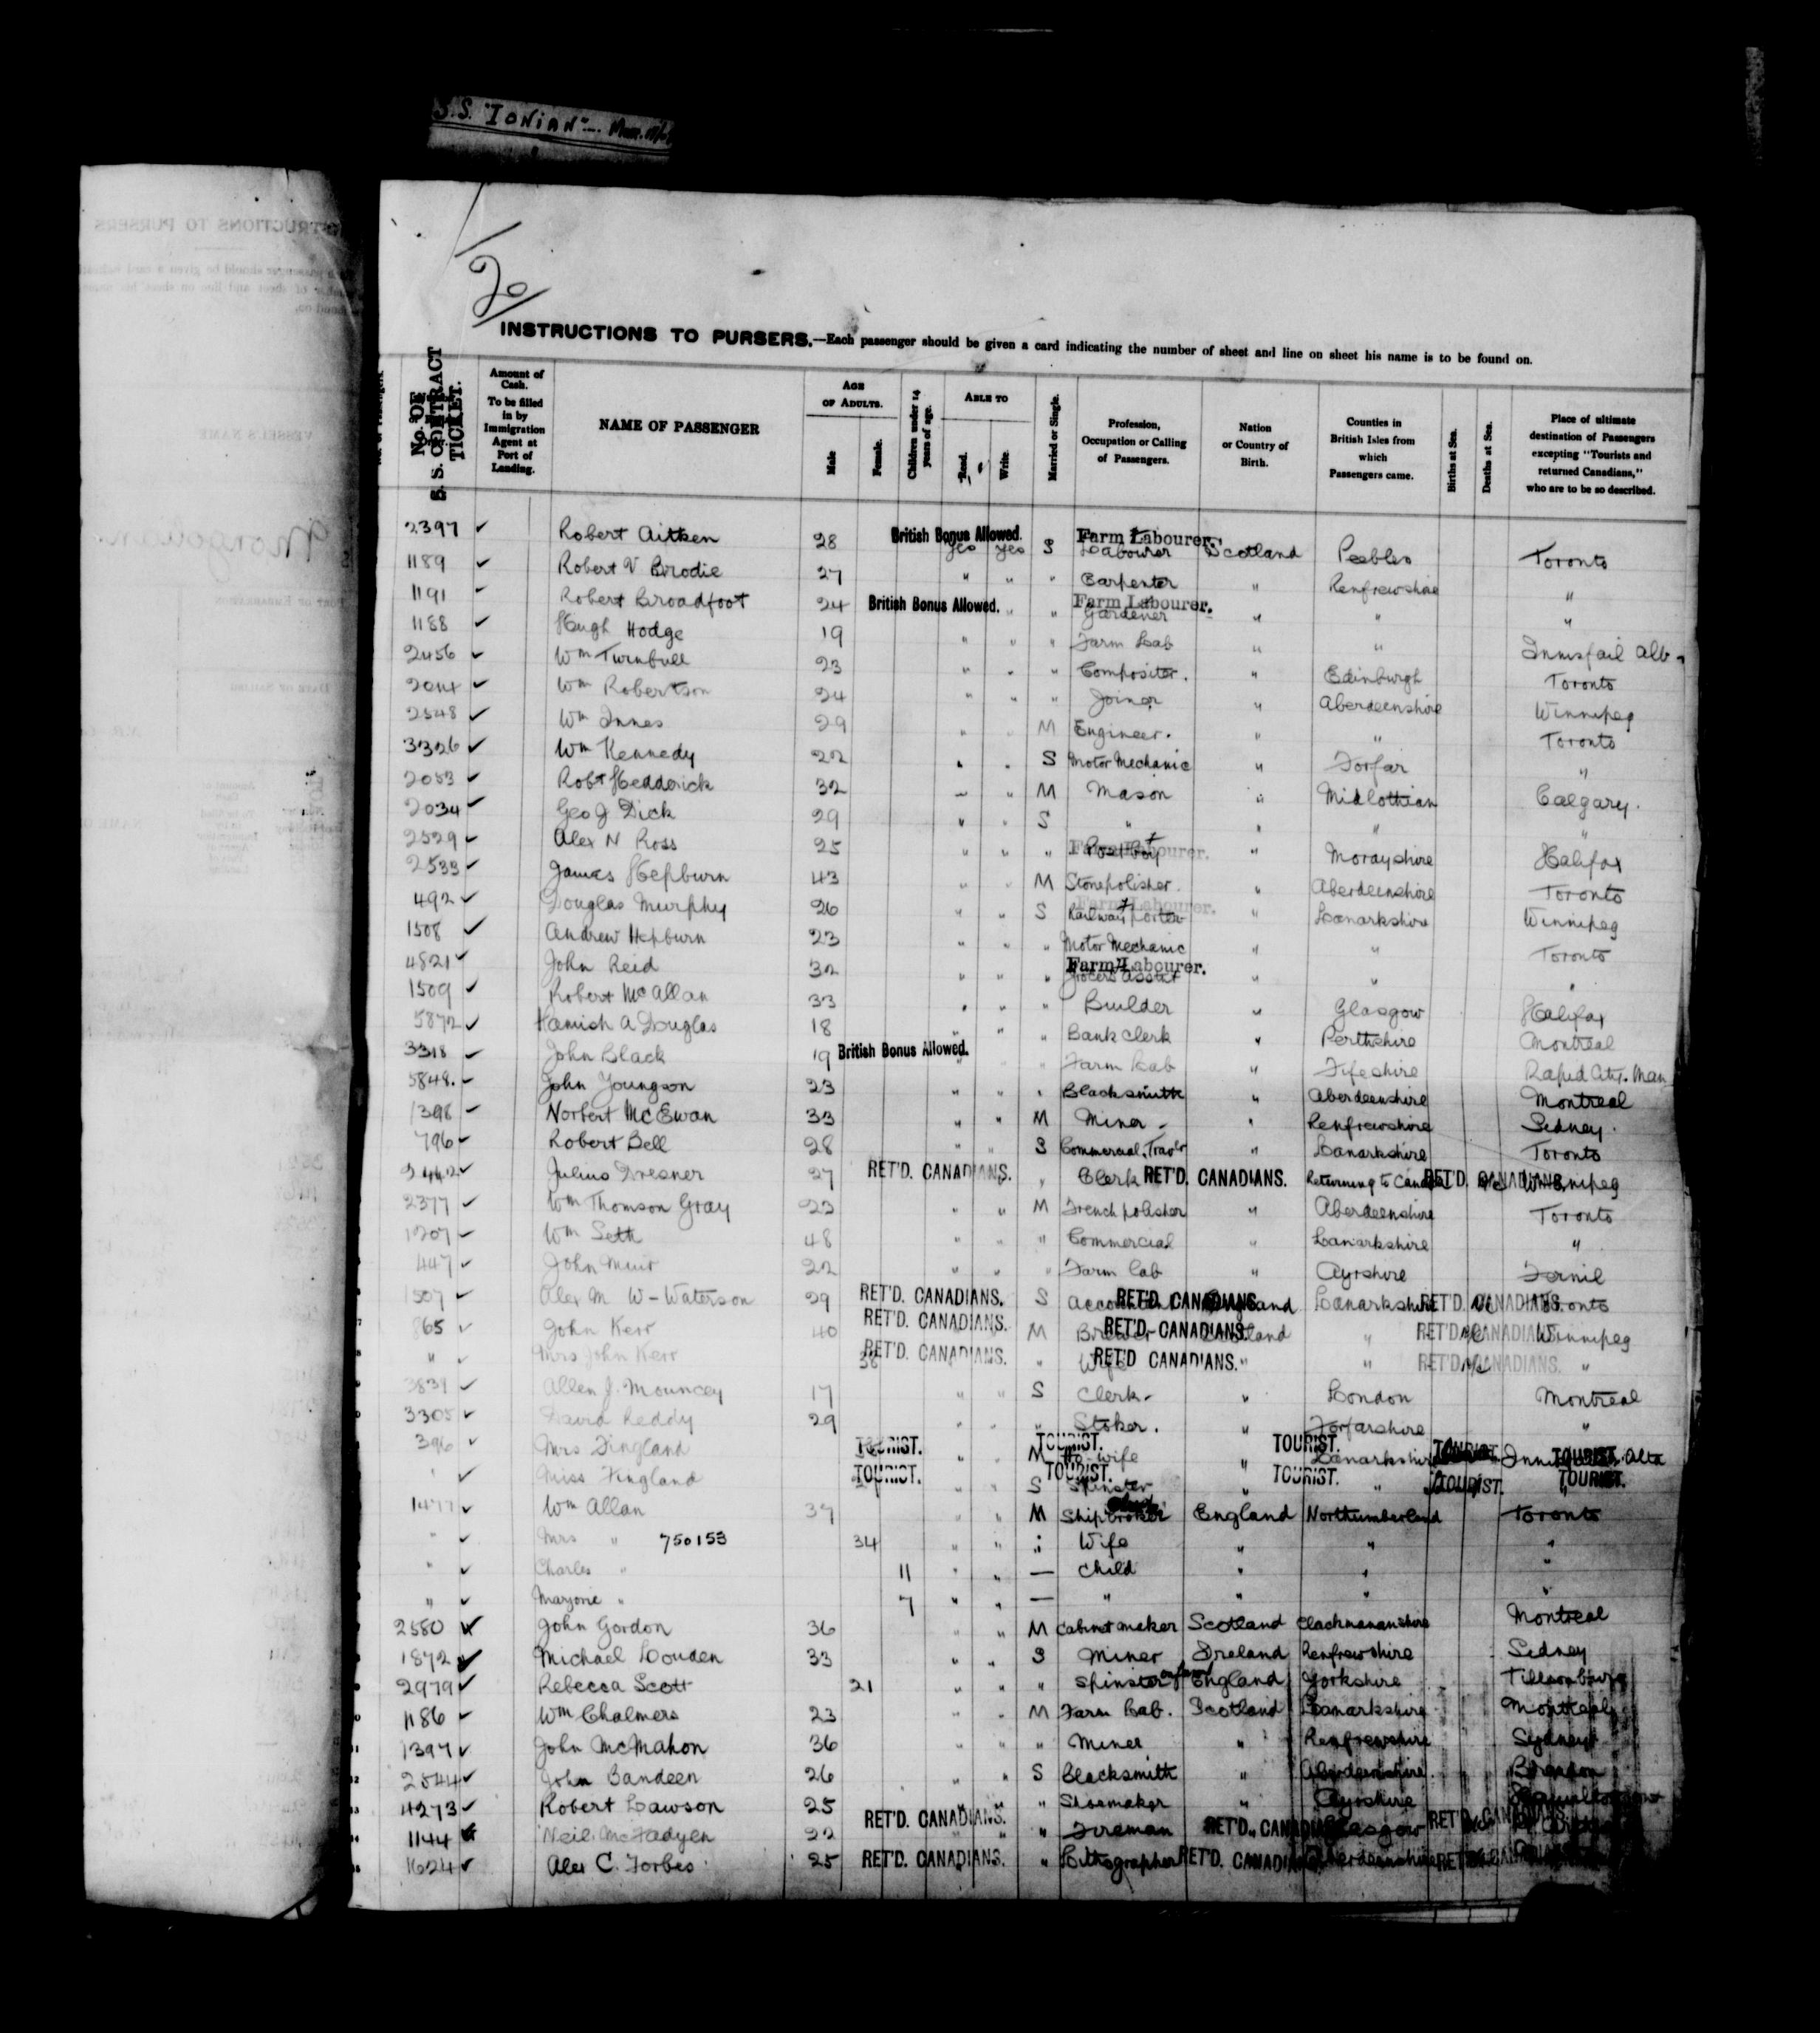 S.S. "IONIAN"
20
INSTRUCTIONS TO PURSERS.—Each passenger should be given a card indicating the number of sheet and line on sheet his name is to be found on.
No. OF S.S. CONTRACT TICKET. Amount of Cash. To be filled in by Immigration Agent at Port of Landing. NAME OF PASSENGER AGE OF ADULTS. Male Female. Children under 14 years of age. ABLE TO Read. Write. Married or Single. Profession, Occupation or Calling of Passengers. Nation or Country of Birth. Counties in British Isles from which Passengers came. Births at Sea. Deaths at Sea. Place of ultimate destination of Passengers excepting "Tourists and returned Canadians," who are to be so described.
2397 ✓ Robert Aitken 28 British Bonus Allowed. yes yes S Farm Labourer. Labourer Scotland Peebles Toronto
1189 ✓ Robert V Brodie 27 " " " Carpenter " Renfrewshire "
1191 ✓ Robert Broadfoot 24 British Bonus Allowed. " " Farm Labourer. Gardener " " "
1188 ✓ Hugh Hodge 19 " " " Farm Lab " " Innisfail Alb
2456 ✓ Wm Turnbull 23 " " " Compositor. " Edinburgh Toronto
2014 ✓ Wm Robertson 24 " " " Joiner " Aberdeenshire Winnipeg
2548 ✓ Wm Innes 29 " " M Engineer. " " Toronto
3326 ✓ Wm Kennedy 22 " " S Motor Mechanic " Forfar "
2053 ✓ Robt Hedderick 32 " " M Mason " Midlothian Calgary.
2034 ✓ Geo J Dick 29 " " S " " " "
2529 ✓ Alex N Ross 25 " " " Farm Labourer. " Morayshire Halifax
2533 ✓ James Hepburn 43 " " M Stonepolisher. " Aberdeenshire Toronto
492 ✓ Douglas Murphy 26 " " S Farm Labourer. Railway porter " Lanarkshire Winnipeg
1508 ✓ Andrew Hepburn 23 " " " Motor Mechanic " " Toronto
4821 ✓ John Reid 32 " " " Farm Labourer. Grocers Assist " " "
1509 ✓ Robert McAllan 33 " " " Builder " Glasgow Halifax
5872 ✓ Hamish A Douglas 18 " " " Bank Clerk " Perthshire Montreal
3318 ✓ John Black 19 British Bonus Allowed. " " Farm Lab " Fifeshire Rapid City. Man
5848. ✓ John Youngson 23 " " " Blacksmith " Aberdeenshire Montreal
1398 ✓ Norbert McEwan 33 " " M Miner " Renfrewshire Sidney.
796 ✓ Robert Bell 28 " " S Commercial Travlr " Lanarkshire Toronto
2442 ✓ Julius Dresner 27 RET'D. CANADIANS. " Clerk RET'D. CANADIANS. Returning to Canada RET'D. CANADIANS. Winnipeg
2377 ✓ Wm Thomson Gray 23 " " M French polisher " Aberdeenshire Toronto
1207 ✓ Wm Seth 48 " " " Commercial " Lanarkshire "
447 ✓ John Muir 22 " " " Farm Lab " Ayrshire Fernie
1507 ✓ Alex M W-Waterson 29 RET'D. CANADIANS. S Accountant RET'D. CANADIANS. England Lanarkshire RET'D. CANADIANS. Toronto
865 ✓ John Kerr 40 RET'D. CANADIANS. M Brewer RET'D. CANADIANS. Scotland " RET'D. CANADIANS. Winnipeg
" ✓ Mrs John Kerr 38 RET'D. CANADIANS. " Wife RET'D CANADIANS. " " RET'D. CANADIANS. "
3839 ✓ Allen J. Mouncey 17 " " S Clerk " London Montreal
3305 ✓ David Reddy 29 " " " Stoker. " Forfarshire "
396 ✓ Mrs Fingland TOURIST. " M TOURIST. Ho-wife TOURIST. " Lanarkshire TOURIST. TOURIST. Alta
" ✓ Miss Fingland TOURIST. " S TOURIST. Spinster TOURIST. " " TOURIST. TOURIST.
1477 ✓ Wm Allan 37 " " M Shipbroker England Northumberland Toronto
" ✓ Mrs " 750153 34 " " " Wife " " "
" ✓ Charles " 11 " " — Child " " "
" ✓ Marjorie " 7 " " — " " " "
2580 ✓ John Gordon 36 " " M Cabinet maker Scotland Clackmananshire Montreal
1872 ✓ Michael Louden 33 " " S Miner Ireland Renfrewshire Sidney
2979 ✓ Rebecca Scott 21 " " " Spinster England Yorkshire Tillsonburg
1186 ✓ Wm Chalmers 23 " " M Farm Lab. Scotland Lanarkshire Montreal
1397 ✓ John McMahon 36 " " " Miner " Renfrewshire Sydney
2544 ✓ John Bandeen 26 " " S Blacksmith " Aberdeenshire Brandon
4273 ✓ Robert Lawson 25 " " " Shoemaker " Ayrshire Hamilton
1144 ✓ Neil McFadyen 22 RET'D. CANADIANS. " Fireman RET'D. CANADIANS. Glasgow RET'D. CANADIANS.
1624 ✓ Alex C. Forbes 25 RET'D. CANADIANS. " Lithographer RET'D. CANADIANS. Aberdeenshire RET'D. CANADIANS.